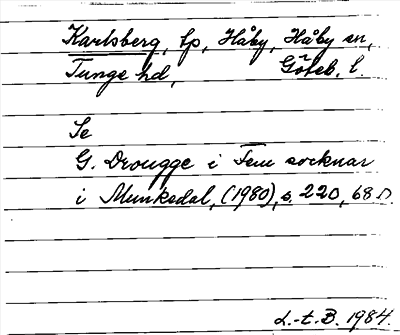 Karlsberg, lp, Håby, Håby sn,
Tunge hd, Göteb. l.
Se
G. Drougge i Fem socknar
i Munkedal, (1980), s. 220, 68
L.-t. B. 1984.